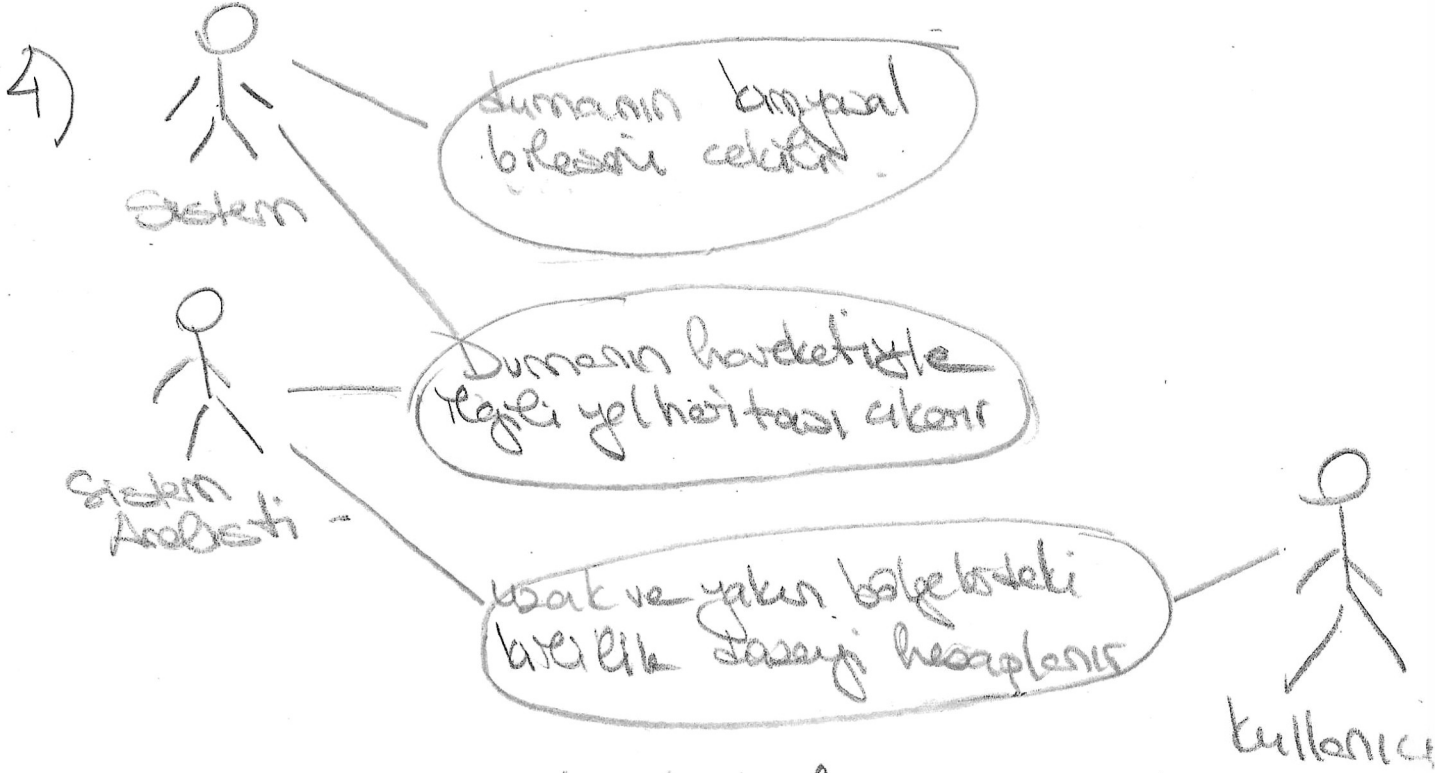 4)
Sistem
dumanın kimyasal
bileseni cekilir
Sistem
Analisti -
Dumanın hareketiyle
ilgili yol haritası cıkarır
uzak ve yakın bölgelerdeki
kirlilik düzeyi hesaplanır
kullanıcı